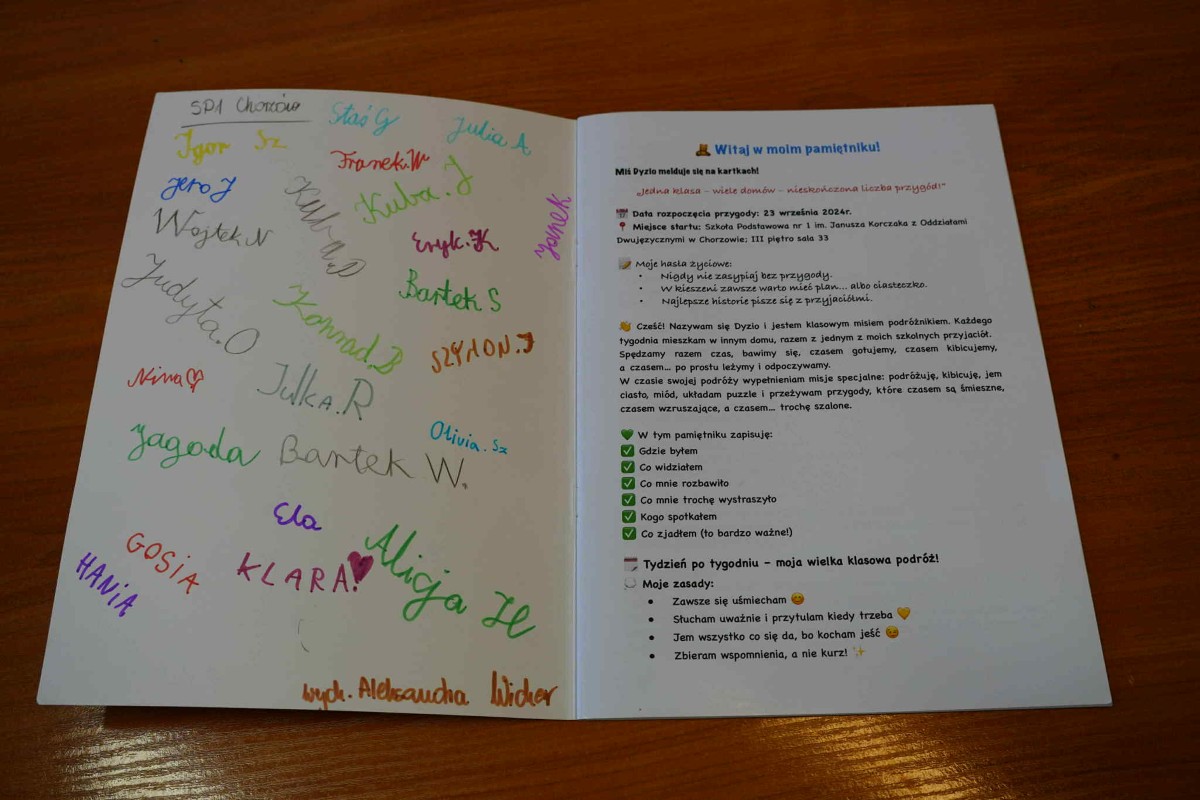 SP1 Chorzów
Staś G
Julia A
Igor Sz
Franek.W
Jero J
Kuba.D
Kuba.J
Janek
Wojtek.N
Eryk.K
Judyta.O
Konrad.B
Bartek S
SZYMON.J
Nina
Julka.R
Olivia.Sz
Jagoda
Bartek W.
Ela
Alicja H
GOSIA
KLARA!
HANIA
wych. Aleksandra Wicher
🧸 Witaj w moim pamiętniku!
Miś Dyzio melduje się na kartkach!
„Jedna klasa – wiele domów – nieskończona liczba przygód!"
📅 Data rozpoczęcia przygody: 23 września 2024r.
📍 Miejsce startu: Szkoła Podstawowa nr 1 im. Janusza Korczaka z Oddziałami
Dwujęzycznymi w Chorzowie; III piętro sala 33
📝 Moje hasła życiowe:
• Nigdy nie zasypiaj bez przygody.
• W kieszeni zawsze warto mieć plan... albo ciasteczko.
• Najlepsze historie pisze się z przyjaciółmi.
👋 Cześć! Nazywam się Dyzio i jestem klasowym misiem podróżnikiem. Każdego
tygodnia mieszkam w innym domu, razem z jednym z moich szkolnych przyjaciół.
Spędzamy razem czas, bawimy się, czasem gotujemy, czasem kibicujemy,
a czasem... po prostu leżymy i odpoczywamy.
W czasie swojej podróży wypełnieniam misje specjalne: podróżuję, kibicuję, jem
ciasto, miód, układam puzzle i przeżywam przygody, które czasem są śmieszne,
czasem wzruszające, a czasem... trochę szalone.
💚 W tym pamiętniku zapisuję:
✅ Gdzie byłem
✅ Co widziałem
✅ Co mnie rozbawiło
✅ Co mnie trochę wystraszyło
✅ Kogo spotkałem
✅ Co zjadłem (to bardzo ważne!)
🗓️ Tydzień po tygodniu – moja wielka klasowa podróż!
💭 Moje zasady:
• Zawsze się uśmiecham 😊
• Słucham uważnie i przytulam kiedy trzeba 💛
• Jem wszystko co się da, bo kocham jeść 😄
• Zbieram wspomnienia, a nie kurz! ✨